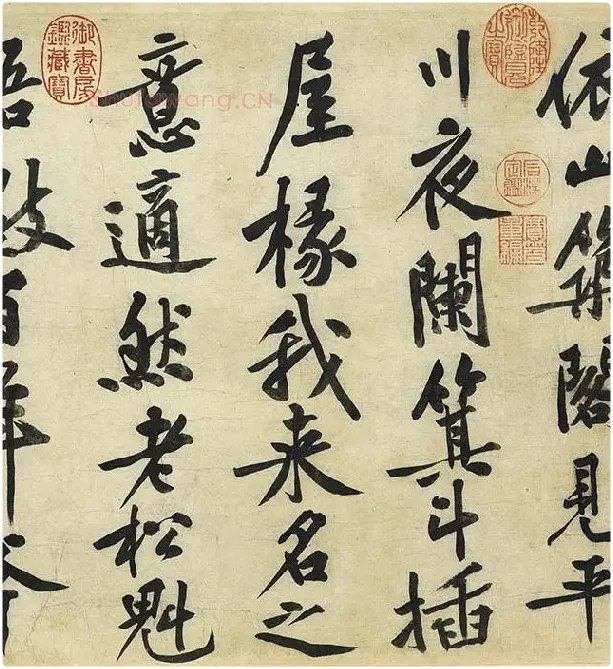 依山築閣見平
川夜闌箕斗插
屋椽我来名之
意適然老松魁
百年
御書房鑑藏寶
shufawang.CN